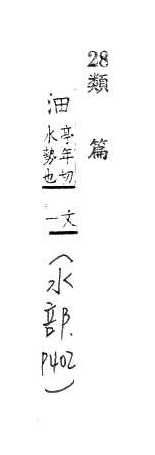 28 類篇
沺 亭年切 水勢也 一文 (水部. P402)